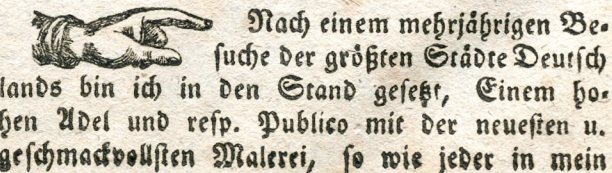 Nach einem mehrjährigen Be-
suche der größten Städte Deutsch
lands bin ich in den Stand gesetzt, Einem ho-
hen Adel und resp. Publico mit der neuesten u.
geschmackvollsten Malerei, so wie jeder in mein